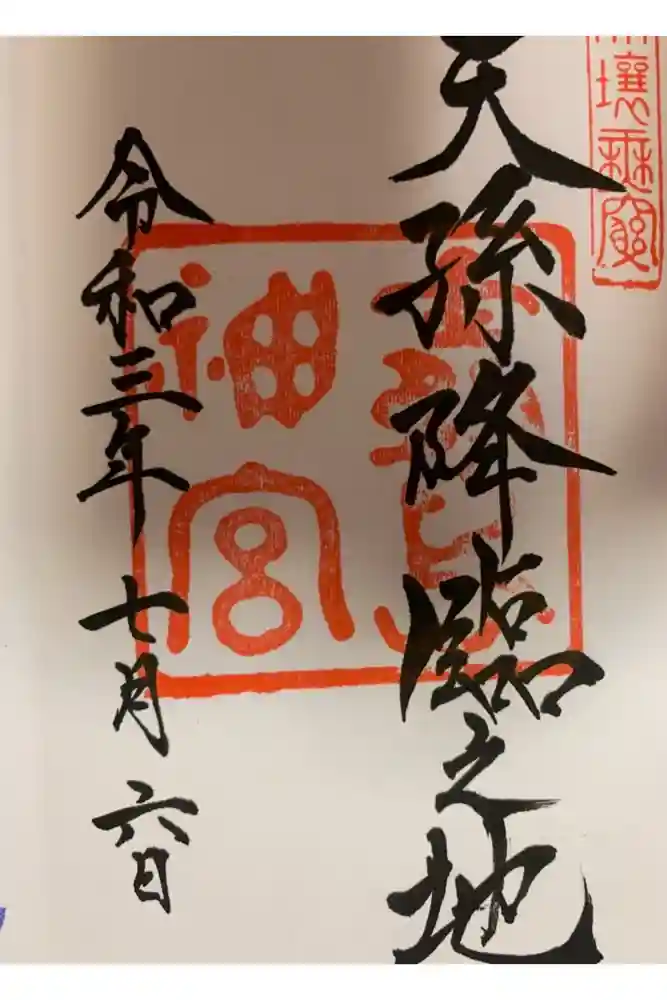 天孫降臨之地
神宮
令和三年 七月 六日